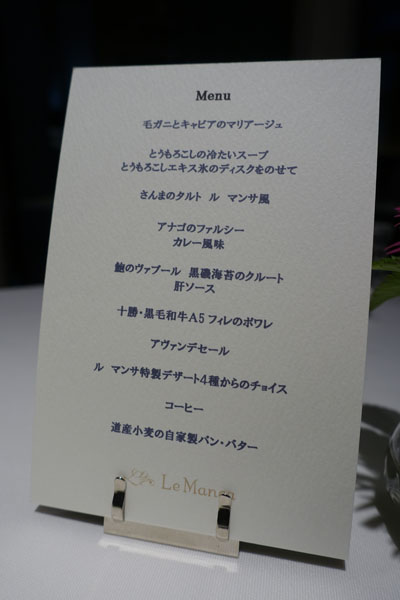 Menu
毛ガニとキャビアのマリアージュ
とうもろこしの冷たいスープ
とうもろこしエキス氷のディスクをのせて
さんまのタルト ル マンサ風
アナゴのファルシー
カレー風味
鮑のヴァプール 黒磯海苔のクルート
肝ソース
十勝・黒毛和牛A5フィレのポワレ
アヴァンデセール
ル マンサ特製デザート4種からのチョイス
コーヒー
道産小麦の自家製パン・バター